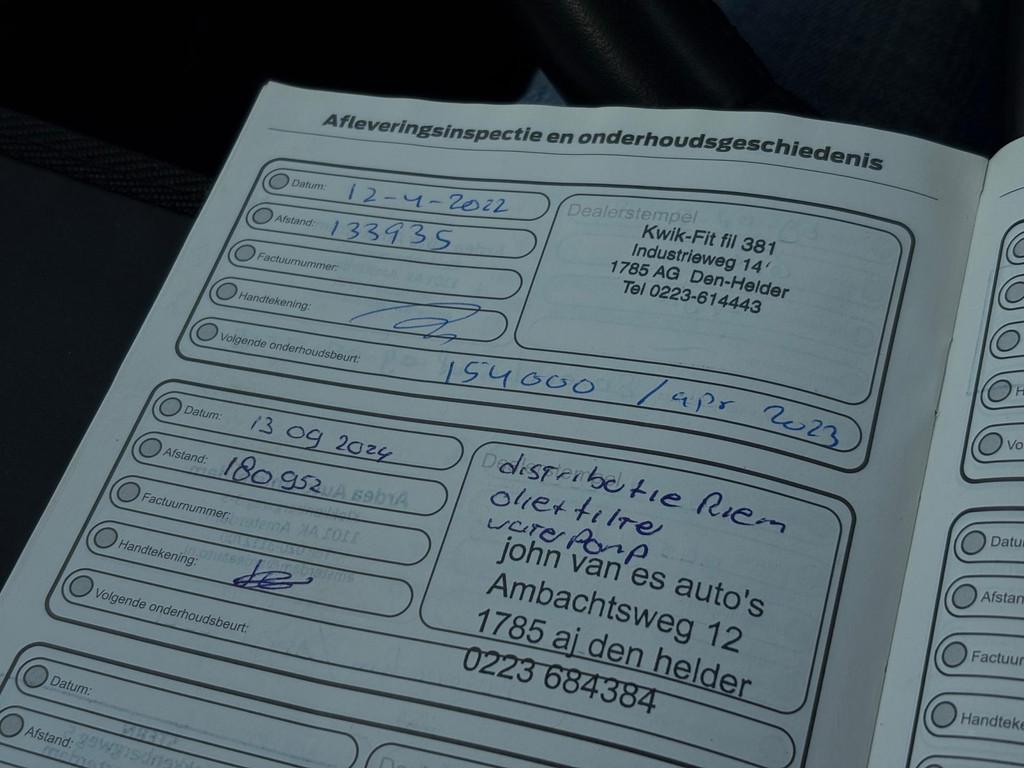 Afleveringsinspectie en onderhoudsgeschiedenis
Datum: 12-4-2022
Afstand: 133935
Factuurnummer:
Handtekening:
Volgende onderhoudsbeurt: 154000 / apr 2023
Dealerstempel
Kwik-Fit fil 381
Industrieweg 14
1785 AG Den-Helder
Tel 0223-614443
Datum: 13 09 2024
Afstand: 180952
Factuurnummer:
Handtekening:
Volgende onderhoudsbeurt:
distributie Riem
olie+filte
waterpomp
john van es auto's
Ambachtsweg 12
1785 aj den helder
0223 684384
Datum:
Afstand:
Datu
Afstan
Factuur
Handteke